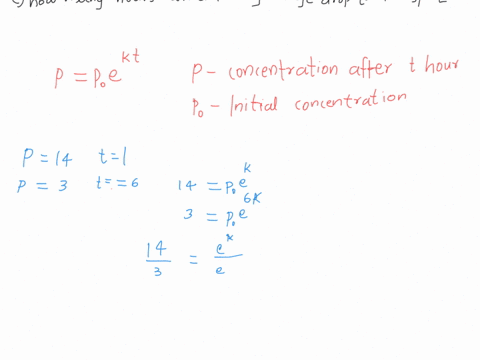 how many hours
drop
P = P₀e^{kt} P - concentration after t hour
P₀ - Initial concentration
P = 14 t = 1
P = 3 t = = 6 14 = P₀e^{k}
3 = P₀e^{6k}
14/3 = e^{k}/e